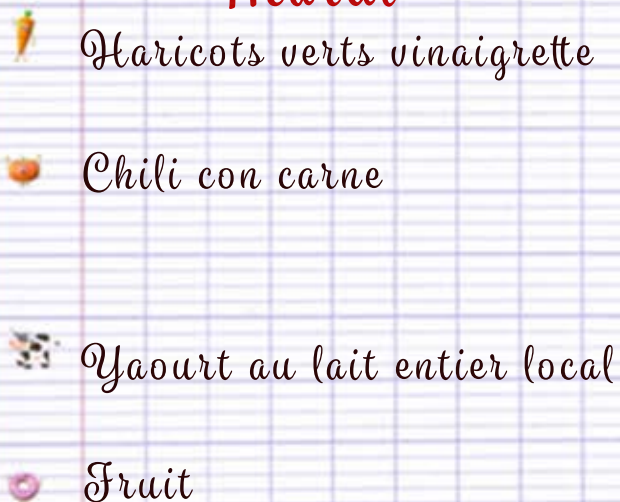 Haricots verts vinaigrette
Chili con carne
Yaourt au lait entier local
Fruit